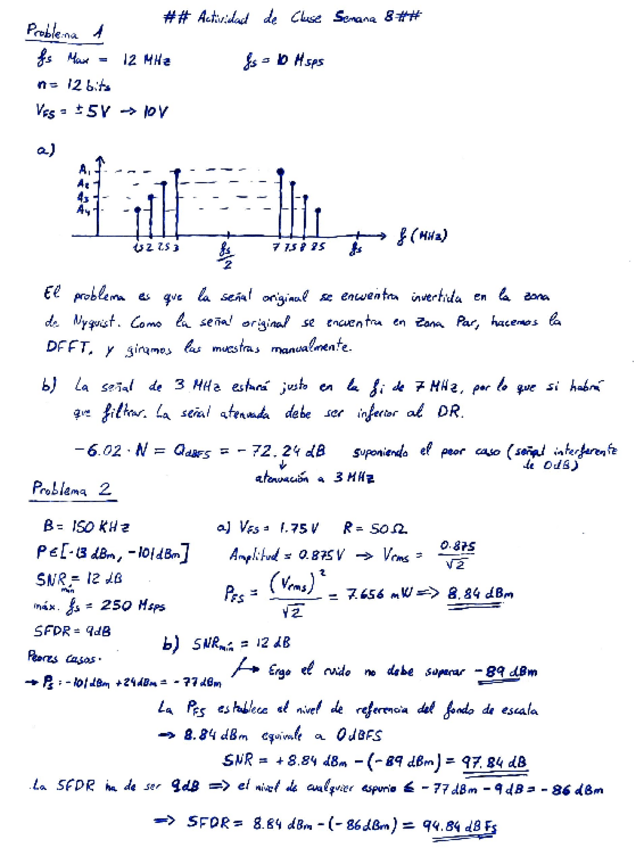 ## Actividad de Clase Semana 8 ##
Problema 1
fs Max = 12 MHz fs = 10 Msps
n = 12 bits
VFS = ±5V → 10V
a)
A1
A2
A3
A4
1,5 2 2.5 3 fs/2 7 7.5 8 8.5 fs f (MHz)
El problema es que la señal original se encuentra invertida en la zona
de Nyquist. Como la señal original se encuentra en Zona Par, hacemos la
DFFT, y giramos las muestras manualmente.
b) La señal de 3 MHz estará justo en la fi de 7 MHz, por lo que si habrá
que filtrar. La señal atenuada debe ser inferior al DR.
-6.02 · N = QdBFS = -72.24 dB suponiendo el peor caso (señal interferente
de 0dB)
↓
atenuación a 3 MHz
Problema 2
B = 150 KHz a) VFS = 1.75 V R = 50 Ω
P ∈ [-13 dBm, -101 dBm] Amplitud = 0.875 V → Vrms = 0.875/√2
SNRmin = 12 dB
PFS = (Vrms)²/√2 = 7.656 mW => 8.84 dBm
máx. fs = 250 Msps
SFDR = 9dB
b) SNRmin = 12 dB
Peores casos.
→ Ergo el ruido no debe superar -89 dBm
→ Ps: -101 dBm + 24 dBm = -77 dBm
La PFS establece el nivel de referencia del fondo de escala
→ 8.84 dBm equivale a 0 dBFS
SNR = +8.84 dBm - (-89 dBm) = 97.84 dB
.La SFDR ha de ser 9dB => el nivel de cualquier espurio ≤ -77 dBm - 9 dB = -86 dBm
=> SFDR = 8.84 dBm - (-86 dBm) = 94.84 dBFs